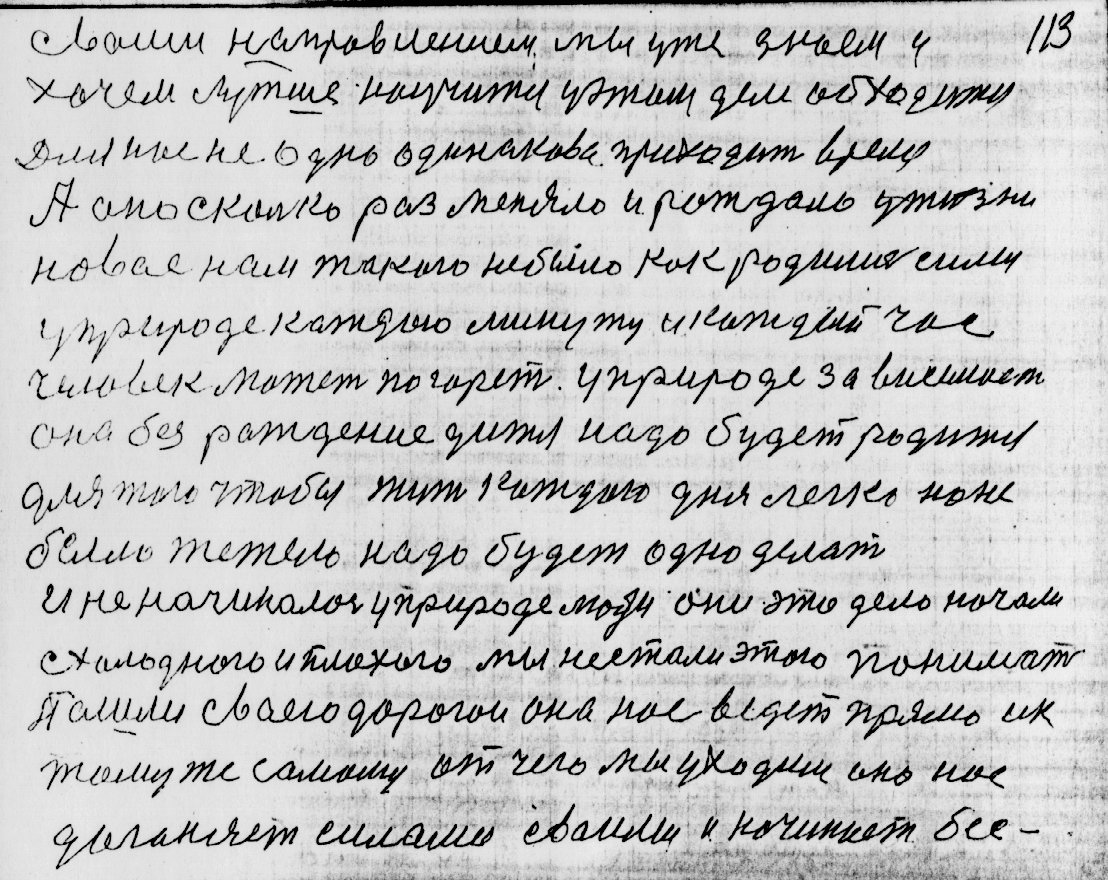 Своим направлением мы уже знаем и 113
хочем лутше научится у этом деле обходится
Для нас не одно одинакова приходит время
А оно сколко раз меняло и рождало у жизни
новое нам такого небыло как родится силы
у природе каждою минуту и каждый час
человек может погорет. у природе зависимост
она без рождение дитя надо будет родится
для того чтобы жит каждого дня легко наже
было тежело надо будет одно делат
И не начиналос у природе люди они это дело начали
схолодного и плохого мы нестали этого понимат
Пашли сваею дорогои она нас ведет прямо и к
томуже самому от чего мы уходим оно нас
доганяет силами своими и начинает бес-